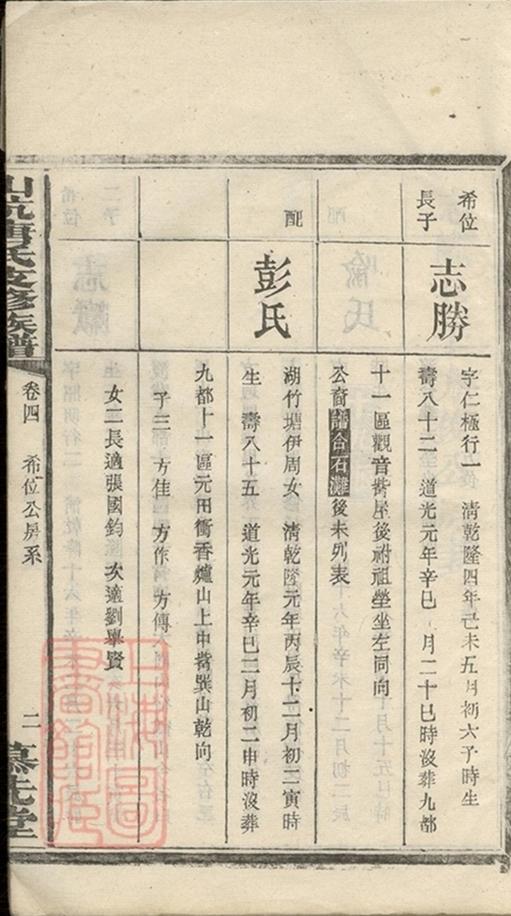 希位
長子
志勝
字仁極行一 清乾隆四年己未五月初六子時生
壽八十二 道光元年辛巳 月二十巳時沒葬九都
十一區觀音嘴屋後祔祖塋坐左同向
公裔譜合石灘後未列表
配
彭氏
湖竹塘伊周女 清乾隆元年丙辰十二月初二寅時
生 壽八十五 道光元年辛巳二月初二申時沒葬
九都十一區元田衝香爐山上中嘴巽山乾向
子三 方佳 方作 方傳
女二長適張國鈞 次適劉舉賢
山坑唐氏支修族譜
卷四 希位公房系
二
慕先堂